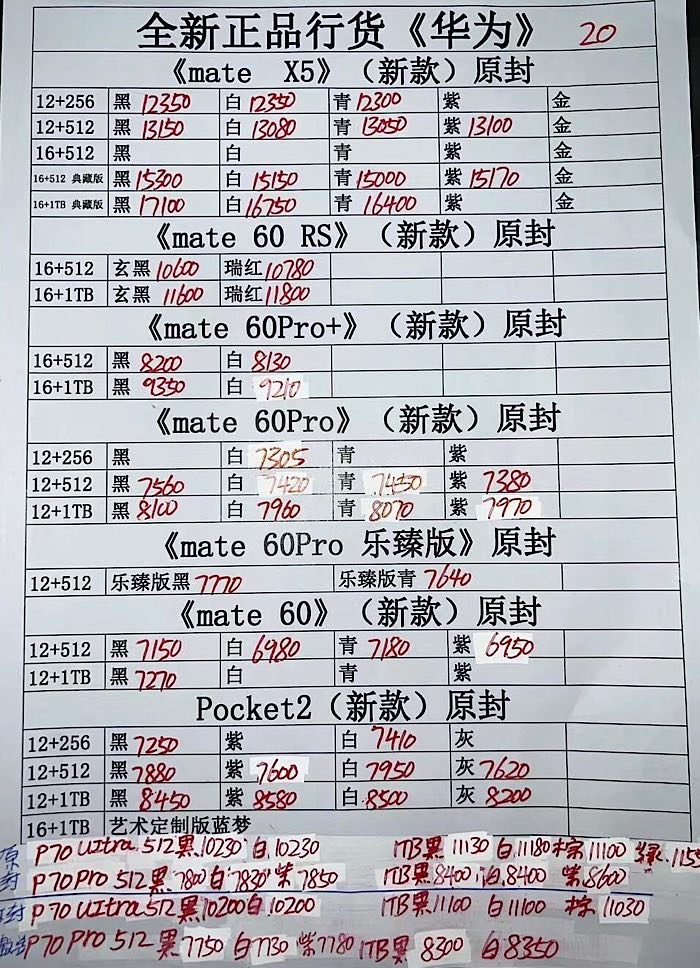 全新正品行货《华为》 20
《mate X5》（新款）原封
12+256 黑 12350 白 12350 青 12300 紫 金
12+512 黑 13150 白 13080 青 13050 紫 13100 金
16+512 黑 白 青 紫 金
16+512 典藏版 黑 15300 白 15150 青 15000 紫 15170 金
16+1TB 典藏版 黑 17100 白 16750 青 16400 紫 金
《mate 60 RS》（新款）原封
16+512 玄黑 10600 瑞红 10780
16+1TB 玄黑 11600 瑞红 11800
《mate 60Pro+》（新款）原封
16+512 黑 8200 白 8130
16+1TB 黑 9350 白 9210
《mate 60Pro》（新款）原封
12+256 黑 白 7305 青 紫
12+512 黑 7560 白 7420 青 7450 紫 7380
12+1TB 黑 8100 白 7960 青 8070 紫 7970
《mate 60Pro 乐臻版》原封
12+512 乐臻版黑 7770 乐臻版青 7640
《mate 60》（新款）原封
12+512 黑 7150 白 6980 青 7180 紫 6950
12+1TB 黑 7270 白 青 紫
Pocket2（新款）原封
12+256 黑 7250 紫 白 7410 灰
12+512 黑 7880 紫 7600 白 7950 灰 7620
12+1TB 黑 8450 紫 8580 白 8500 灰 8200
16+1TB 艺术定制版蓝梦
原 P70 Ultra 512 黑.10230 白.10230 1TB黑 11130 白.11180 棕 11100 绿.1155
封 P70 Pro 512 黑.7800 白 7830 紫 7850 1TB黑.8400 白.8400 紫.8600
封 P70 Ultra 512 黑 10200 白.10200 1TB黑 11100 白 11100 棕 11030
P70 Pro 512 黑 7750 白 7730 紫 7780 1TB黑 8300 白 8350